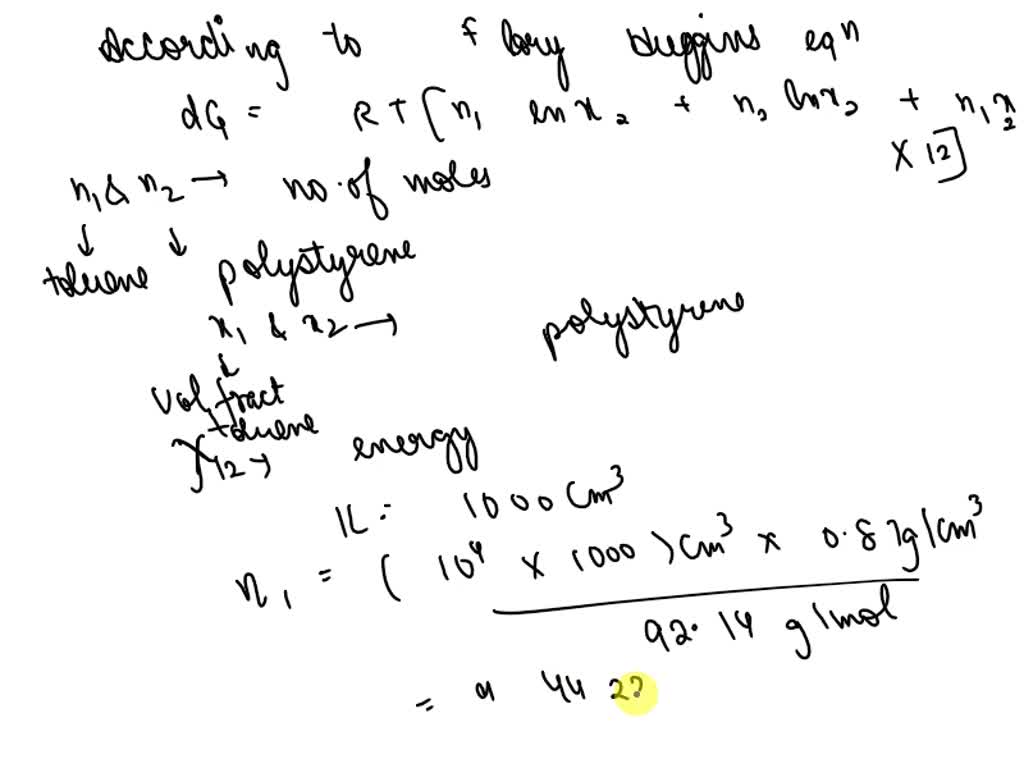 According to flory Huggins eqn
dG = RT [n1 ln x2 + n2 ln x2 + n1 x2
X12]
n1 & n2 → no. of moles
↓ ↓
toluene polystyrene
x1 & x2 → polystyrene
↓
vol. fract
toluene
X12 → energy
1L = 1000 cm³
n1 = (10⁴ × 1000) cm³ × 0.87 g/cm³
92.14 g/mol
= 9 44 22